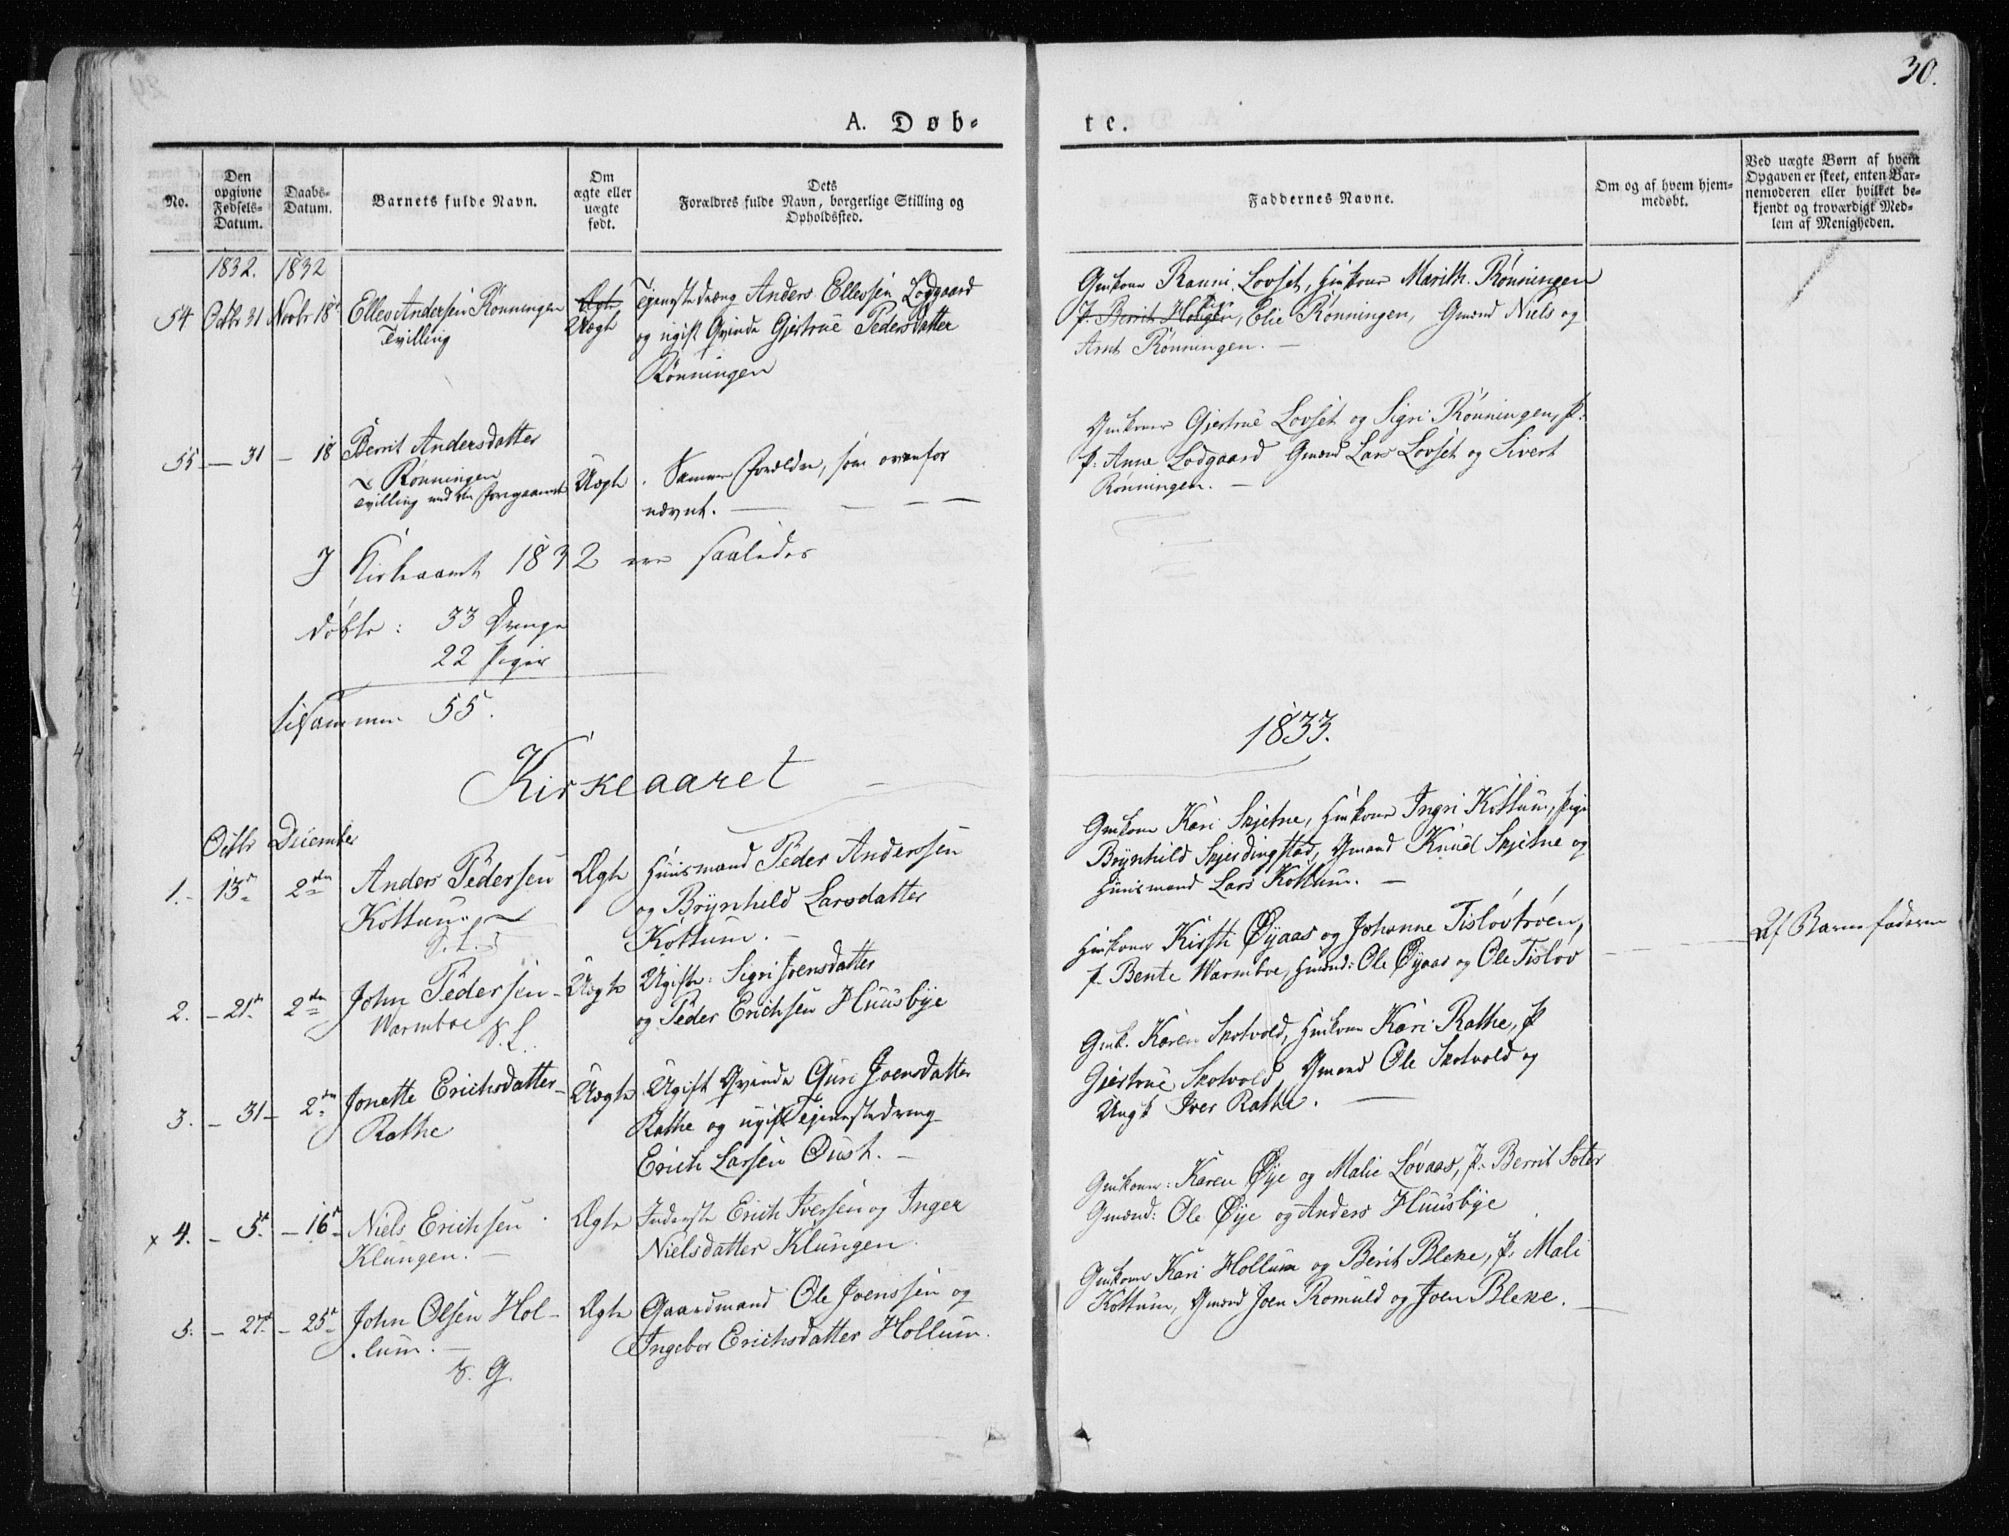 30.
A. Døb-
te.
No.
Den
opgivne
Fødsels-
Datum.
Daabs-
Datum.
Barnets fulde Navn.
Om
ægte eller
uægte
født.
Dets
Forældres fulde Navn, borgerlige Stilling og
Opholdssted.
Faddernes Navne.
Om og af hvem hjem-
medøbt.
Ved uægte Børn af hvem
Opgaven er skeet, enten Bar-
nemoderen eller hvilket be-
kjendt og troværdigt Med-
lem af Menigheden.
1832. 1832
54 Octbr 31 Novbr 18 Ellev Andersen Rønningen
Tvilling
Ægte
Uægte
Tjenestedræng Anders Ellevsen Lodgaard
og ugift Qvinde Gjertrue Pedersdatter
Rønningen
Gmkone Ranni Lovset, Hmkone Marith Rønningen
P. Berrit, Elie Rønningen, Gmænd Niels og
Arnt Rønningen. —
55 — 31 — 18 Berrit Andersdatter
Rønningen
Tvilling med den foregaaende
Uægte
Samme Forældre, som ovenfor
nævnt. — — —
Gmkoner Gjertrue Lovset og Sigri Rønningen, P.
P. Anne Lodgaard Gmænd Lars Lovset og Sivert
Rønningen. —
I Kirkeaaret 1832 ere saaledes
døbte: 33 Drenge
22 Piger
tilsammen 55.
Kirkeaaret
1833.
Octbr December
1. 13 2den Anders Pedersen
Kottum
Ægte
Huusmand Peder Andersen
og Brynhild Larsdatter
Kottum. —
Gmkone Kari Skjetne, Hmkone Ingri Kottum, Pige
Brynhild Skjerdingstad, Gmand Knud Skjetne og
Huusmand Lars Kottum. —
2. — 21 2den John Pedersen
Warmboe
Uægte
Ugifte: Sigri Joensdatter
og Peder Erichsen Huusbye
Hmkoner Kirsti Øyaas og Johanne Tisløvtrøen,
P. Bente Warmboe, Hmænd: Ole Øyaas og Ole Tisløv
Af Barnefaderen
3. — 31 — 2den Jonette Erichsdatter
Rathe
Uægte
Ugift Qvinde Guri Joensdatter
Rathe og ugift Tjenestedreng
Erich Larsen Qust. —
Gmk. Karen Skotvold, Hmkone Kari Rathe, P
Gjertrue Skotvold, Gmand Ole Skotvold og
Ungk Iver Rathe. —
x 4. — 5. — 16 Niels Erichsen
Klungen. —
Ægte
Inderste Erich Iversen og Inger
Nielsdatter Klungen.
Gmkoner: Karen Øye og Malie Løvaas, P. Berrit Soter
Gmænd: Ole Øye og Anders Huusbye
5. — 27 — 25 John Olsen Hol-
lum. —
Ægte
Gaardmand Ole Joenssen og
Ingebor Erichsdatter Hollum.
Gmkoner Kari Hollum og Berit Bleke, P. Mali
Kottum, Gmænd Joen Romuld og Joen Bleke. —